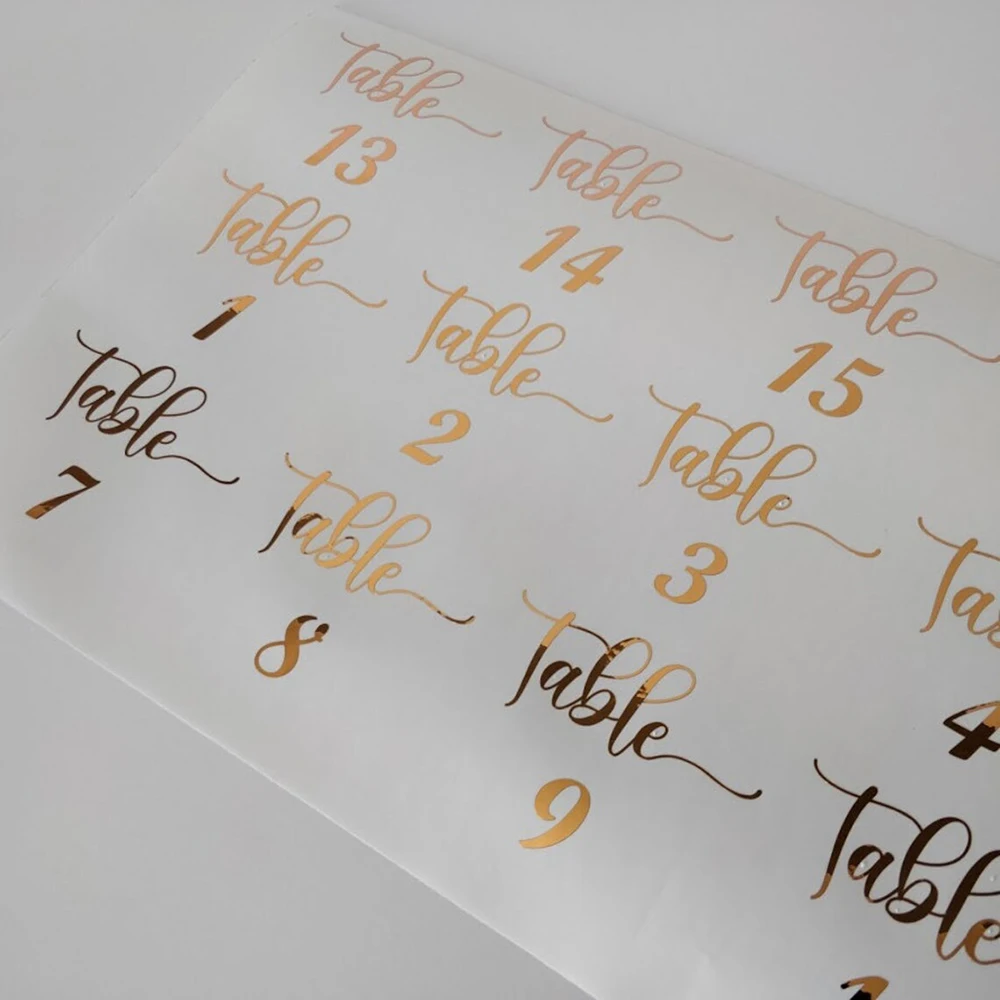 Table
13
Table
14
Table
15
Table
1
Table
2
Table
3
4
Table
7
Table
8
Table
9
Table